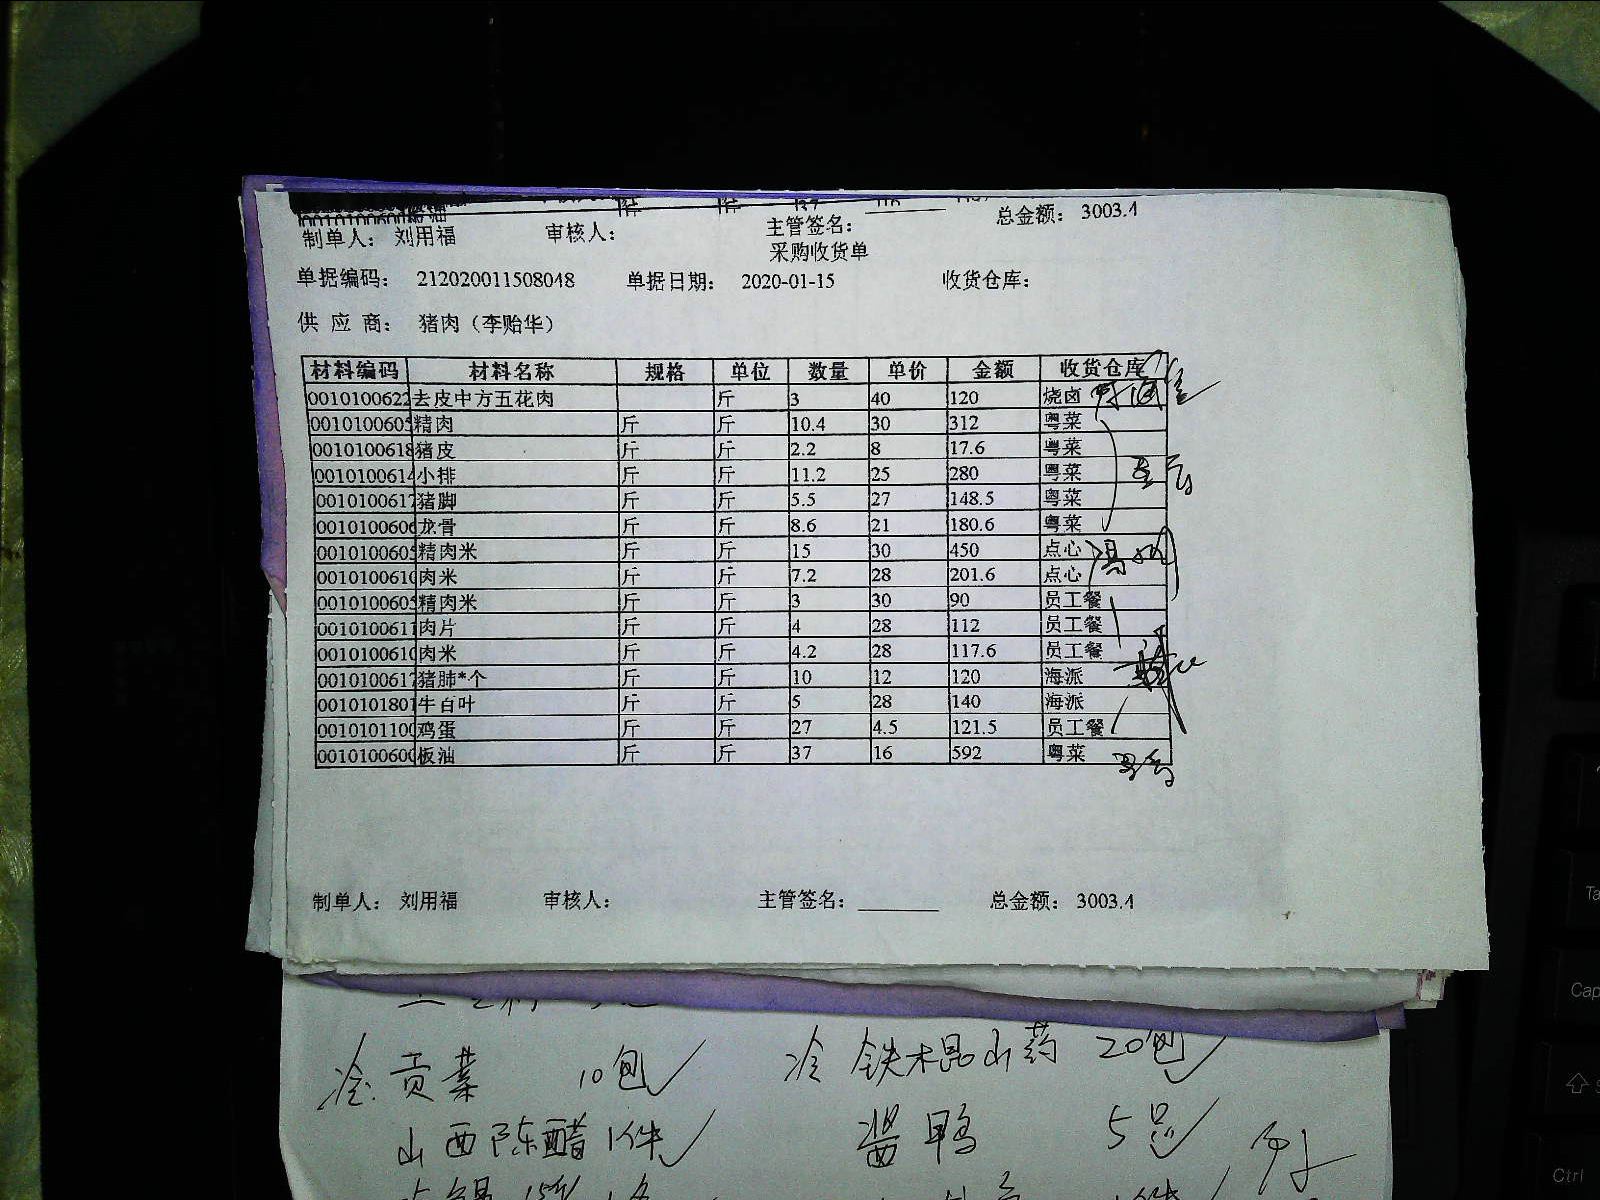 总金额： 3003.4
制单人： 刘用福 审核人： 主管签名：
采购收货单
单据编码： 212020011508048 单据日期： 2020-01-15 收货仓库：
供 应 商： 猪肉（李贻华）
材料编码 材料名称 规格 单位 数量 单价 金额 收货仓库
0010100622 去皮中方五花肉 斤 3 40 120 烧卤
001010060 精肉 斤 斤 10.4 30 312 粤菜
0010100618 猪皮 斤 斤 2.2 8 17.6 粤菜
001010061 小排 斤 斤 11.2 25 280 粤菜
001010061 猪脚 斤 斤 5.5 27 148.5 粤菜
001010060 龙骨 斤 斤 8.6 21 180.6 粤菜
001010060 精肉米 斤 斤 15 30 450 点心
001010061 肉米 斤 斤 7.2 28 201.6 点心
001010060 精肉米 斤 斤 3 30 90 员工餐
001010061 肉片 斤 斤 4 28 112 员工餐
001010061 肉米 斤 斤 4.2 28 117.6 员工餐
001010061 猪肺*个 斤 斤 10 12 120 海派
001010180 牛百叶 斤 斤 5 28 140 海派
001010110 鸡蛋 斤 斤 27 4.5 121.5 员工餐
001010060 板油 斤 斤 37 16 592 粤菜
制单人： 刘用福 审核人： 主管签名： 总金额： 3003.4
冷 贡菜 10包 冷 铁木昆山药 20包
山西陈醋 1件 酱鸭 5只
Cap
Ctrl